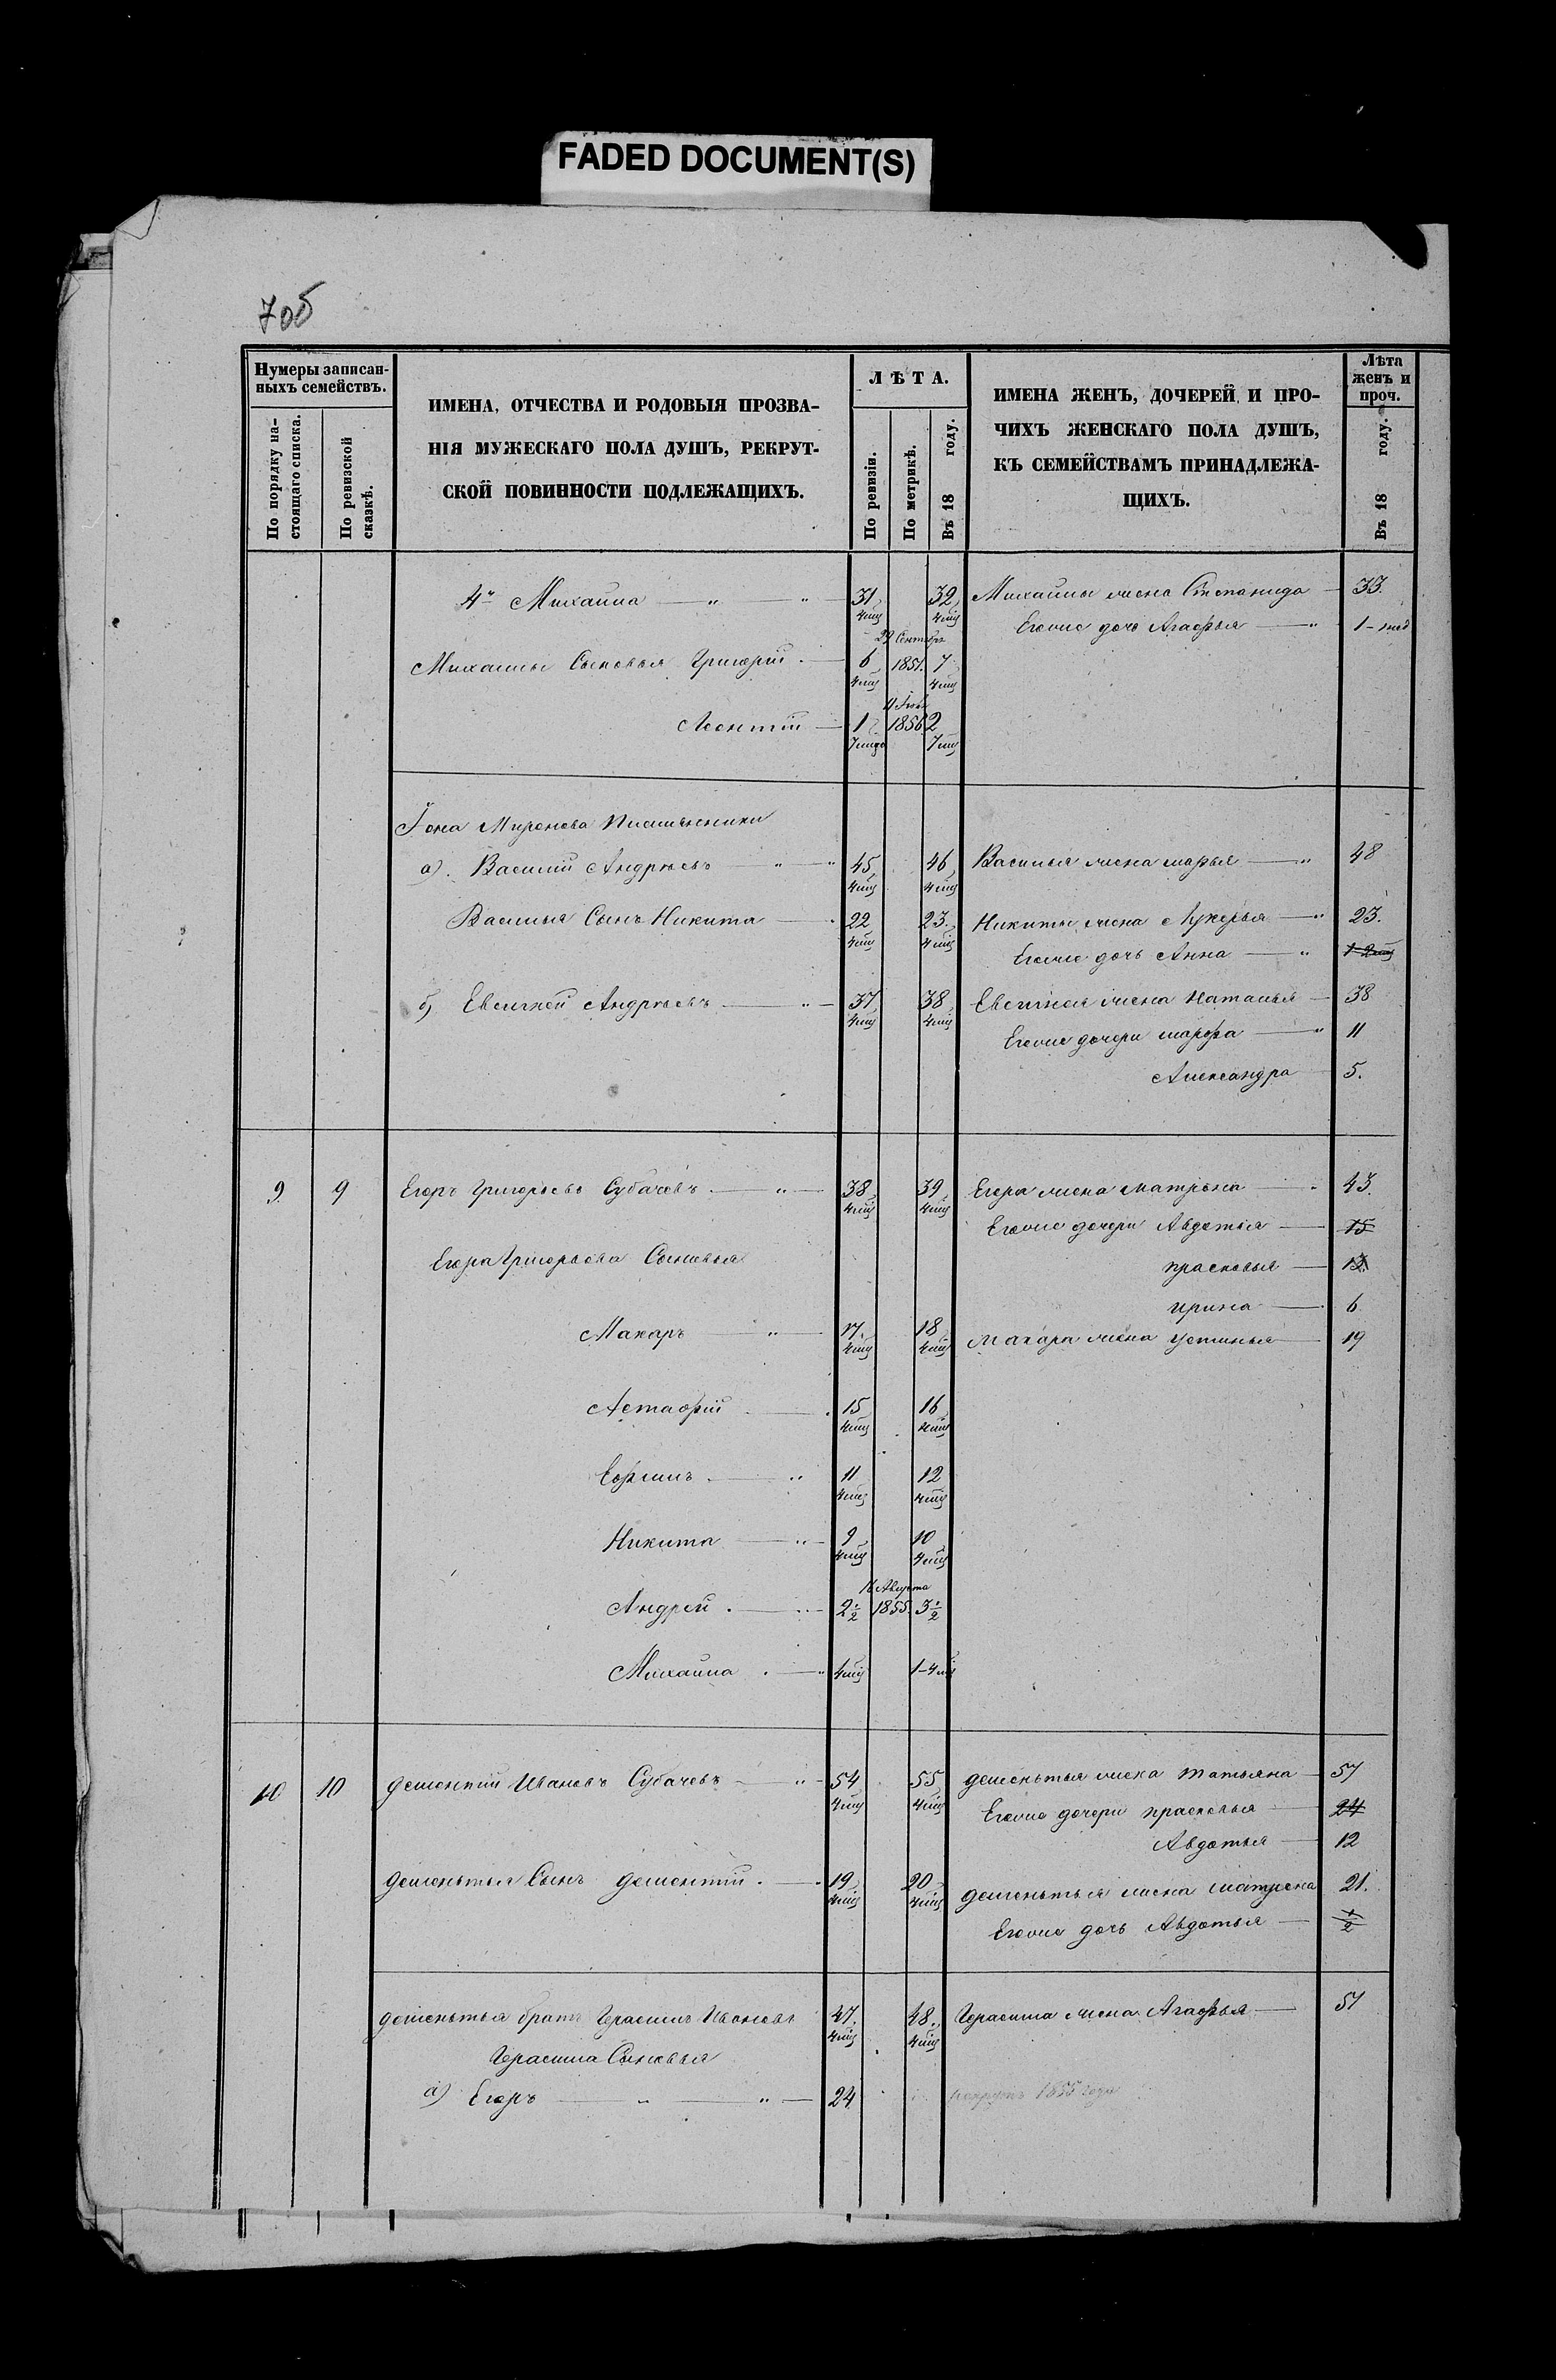 FADED DOCUMENT(S)
70б
Нумеры записан-
ныхъ семействъ.
По порядку на-
стоящаго списка.
По ревизской
сказкѣ.
ИМЕНА, ОТЧЕСТВА И РОДОВЫЯ ПРОЗВА-
НІЯ МУЖЕСКАГО ПОЛА ДУШЪ, РЕКРУТ-
СКОЙ ПОВИННОСТИ ПОДЛЕЖАЩИХЪ.
ЛѢТА.
По ревизіи.
По метрикѣ.
Въ 18 году.
ИМЕНА ЖЕНЪ, ДОЧЕРЕЙ И ПРО-
ЧИХЪ ЖЕНСКАГО ПОЛА ДУШЪ,
КЪ СЕМЕЙСТВАМЪ ПРИНАДЛЕЖА-
ЩИХЪ.
Лѣта
женъ и
проч.
Въ 18 году.
4й Михаила 31 32 Михаилы жена Степанида 33.
4мц 4мц
Егоже дочь Агафья 1-
29 Сентября
Михаилы Сыновья Григорій 6 1851. 7
4мц 4мц
Леонтій 1 1856 2
7мц 7мц
Іона Миронова Племянники
а). Василій Андреевъ 45 46 Василья жена марья 48
4мц 4мц
Василья Сынъ Никита 22 23. Никиты жена Лукерья 23.
4мц 4мц
Егоже дочь Анна 1-2мц
б) Евсигней Андреевъ 37 38 Евсигнея жена наталья 38
4мц 4мц
Егоже дочери марфа 11
Александра 5.
9 9 Егоръ Григорьевъ Субачевъ 38 39 Егора жена матрена 43.
4мц 4мц
Егоже дочери Авдотья 15
Егора Григорьева Сыновья
прасковья 13.
ирина 6
Макаръ 17. 18 Макара жена устинья 19
4мц 4мц
Астафій 15 16
4мц 4мц
Ефимъ 11 12
4мц 4мц
Никита 9 10
4мц 4мц
16 Августа
Андрей 2½ 1855. 3½
Михаила 4мц 1-4мц
10 10 дементій Ивановъ Субачевъ 54 55 дементья жена татьяна 57
4мц 4мц
Егоже дочери прасковья 24
Авдотья 12
дементья Сынъ дементій 19 20 дементья жена матрена 21.
4мц 4мц
Егоже дочь Авдотья ½
дементья братъ Герасимъ Ивановъ 47. 48. Герасима жена Агафья 51
4мц 4мц
Герасима Сыновья
а) Егоръ 24 1855 года